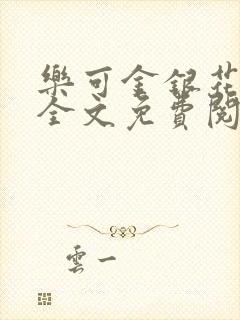 樂可金銀花
全文免費閱
雲一